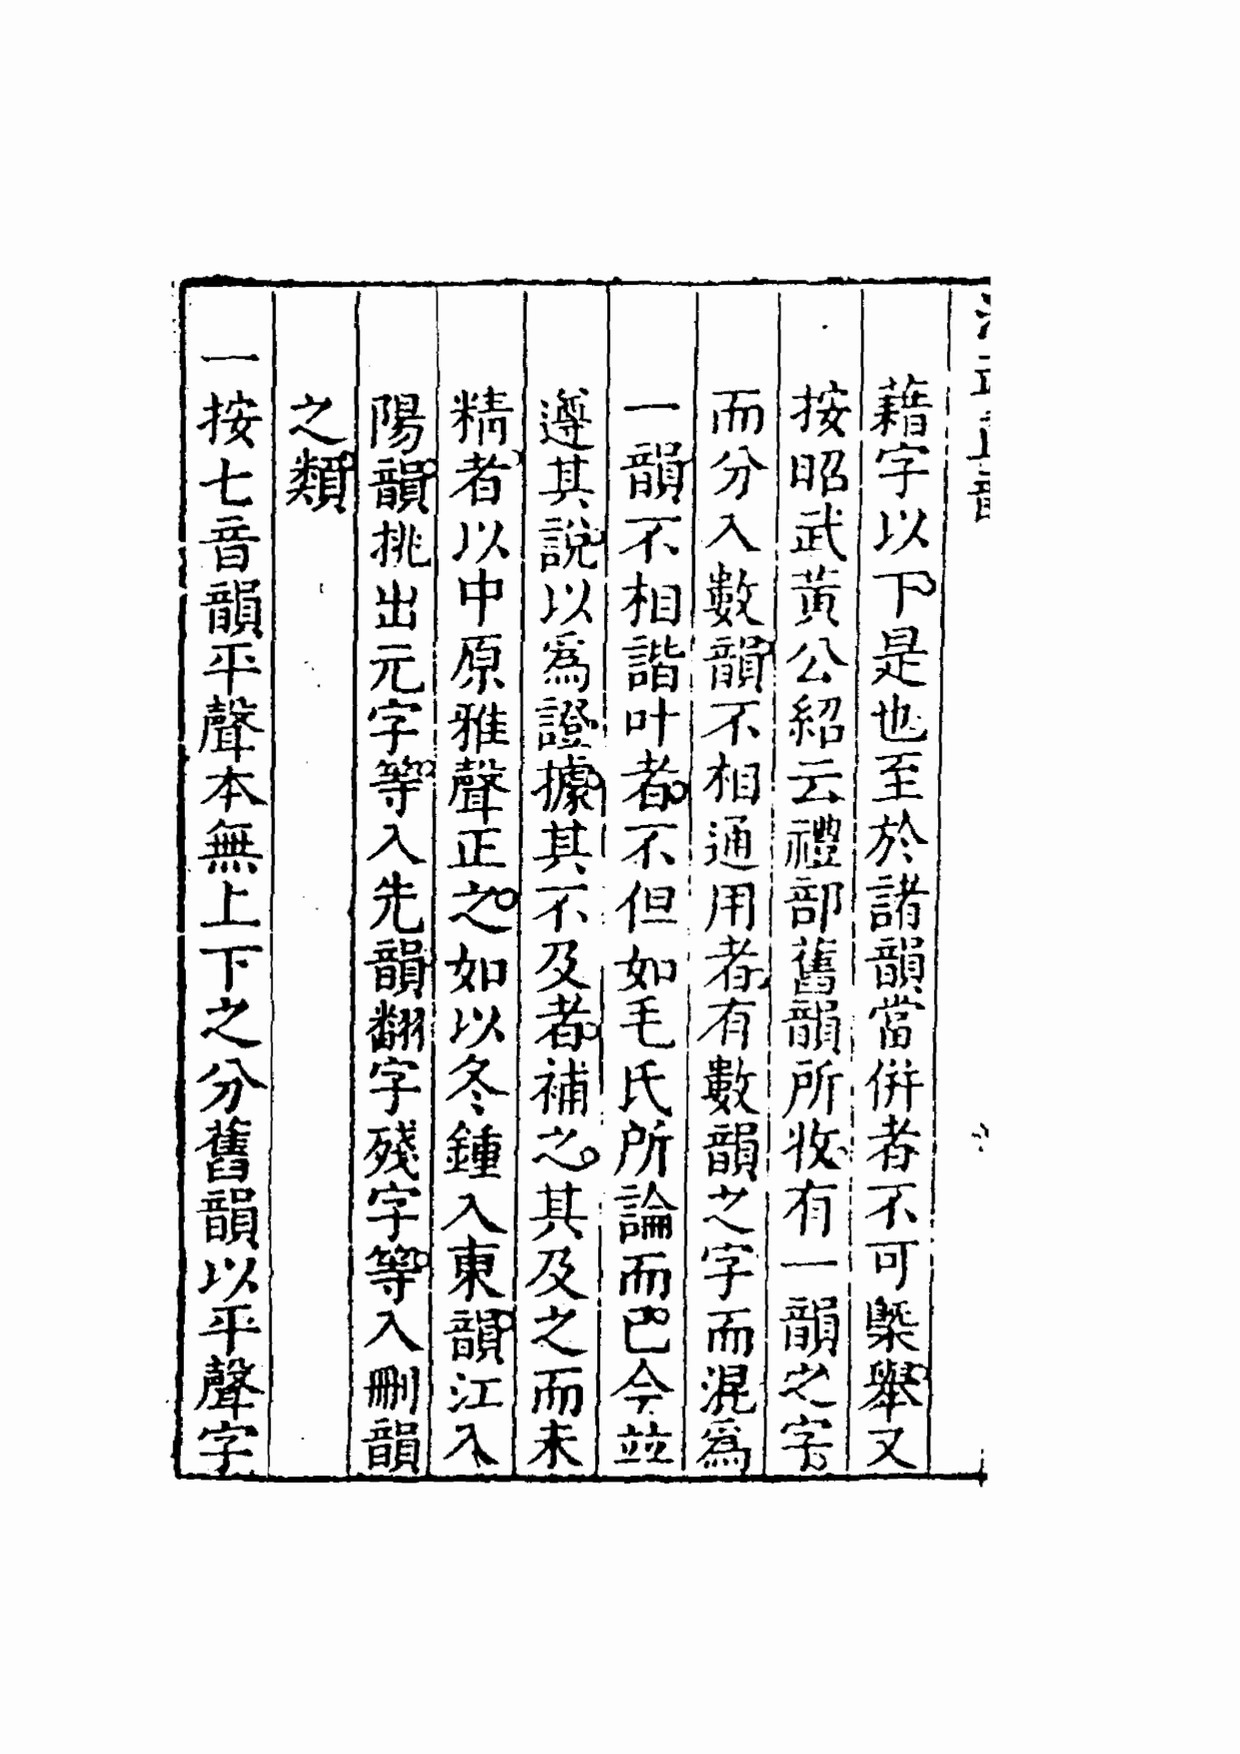 藉字以下是也至於諸韻當併者不可槩舉又
按昭武黃公紹云禮部舊韻所收有一韻之字
而分入數韻不相通用者有數韻之字而混爲
一韻不相諧叶者不但如毛氏所論而已今並
遵其說以爲證據其不及者補之其及之而未
精者以中原雅聲正之如以冬鍾入東韻江入
陽韻挑出元字等入先韻翻字殘字等入刪韻
之類
一按七音韻平聲本無上下之分舊韻以平聲字